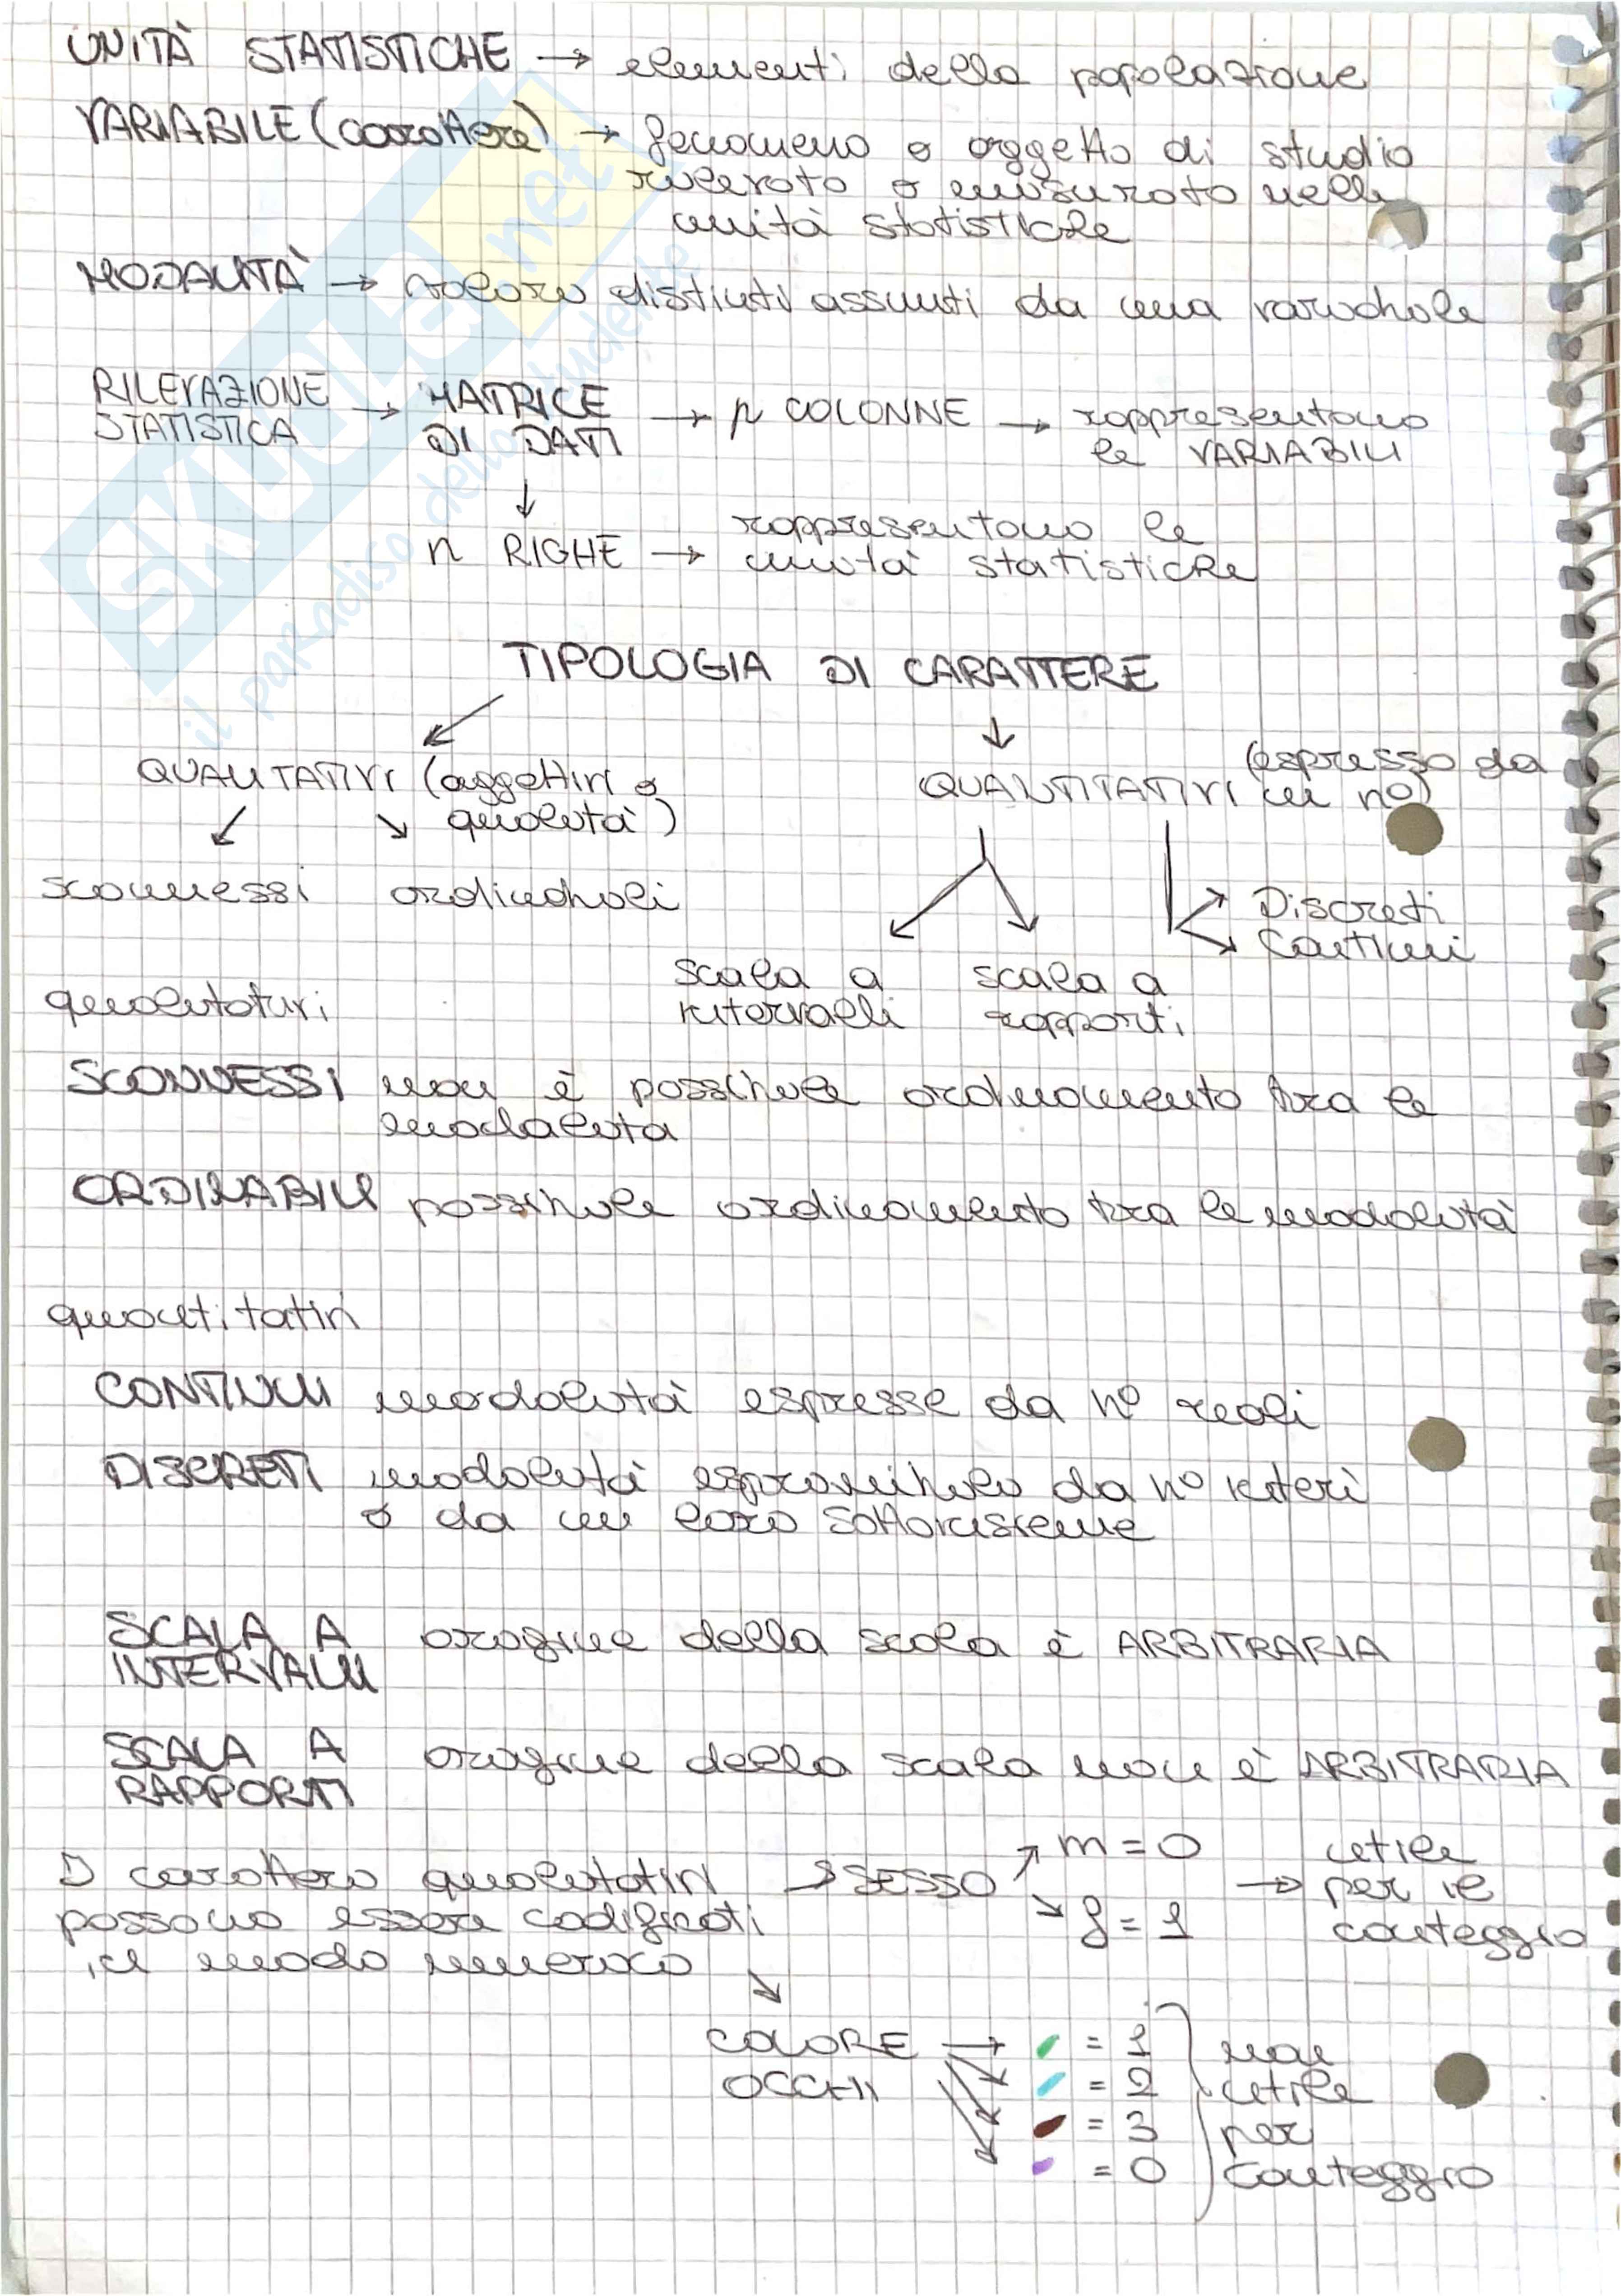 UNITÀ STATISTICHE → elementi della popolazione
VARIABILE (carattere) → fenomeno o oggetto di studio
rilevato o misurato nelle
unità statistiche
MODALITÀ → valori distinti assunti da una variabile
RILEVAZIONE STATISTICA → MATRICE DI DATI → p COLONNE → rappresentano le VARIABILI
↓
n RIGHE → rappresentano le unità statistiche
TIPOLOGIA DI CARATTERE
QUALITATIVI (aggettivi o qualità)
QUANTITATIVI (espresso da un nº)
sconnessi ordinabili
Discreti
Continui
scala a intervalli
scala a rapporti
qualitativi
SCONNESSI non è possibile ordinamento tra le
modalità
ORDINABILI possibile ordinamento tra le modalità
quantitativi
CONTINUI modalità espresse da nº reali
DISCRETI modalità esprimibili da nº interi
o da un loro sottoinsieme
SCALA A INTERVALLI origine della scala è ARBITRARIA
SCALA A RAPPORTI origine della scala non è ARBITRARIA
I caratteri qualitativi → SESSO
possono essere codificati
in modo numerico
m = 0
f = 1
→ utile
per il
conteggio
COLORE OCCHI
= 1
= 2
= 3
= 0
non
utile
per
conteggio
SKUOLA.net
il paradiso dello studente